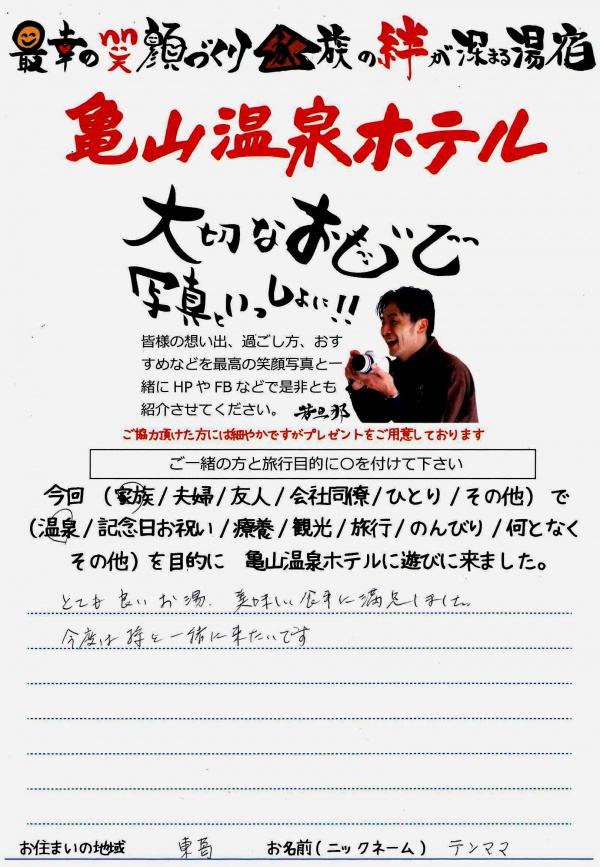 最幸の笑顔づくり 家族の絆が深まる湯宿
亀山温泉ホテル
大切なおもいで
写真といっしょに!!
皆様の想い出、過ごし方、おす
すめなどを最高の笑顔写真と一
緒にHPやFBなどで是非とも
紹介させてください。 若旦那
ご協力頂けた方には細やかですがプレゼントをご用意しております
ご一緒の方と旅行目的に〇を付けて下さい
今回 (家族/夫婦/友人/会社同僚/ひとり/その他) で
(温泉/記念日お祝い/療養/観光/旅行/のんびり/何となく
その他) を目的に 亀山温泉ホテルに遊びに来ました。
とても良いお湯、美味しい食事に満足しました。
今度は孫と一緒に来たいです
お住まいの地域 東葛 お名前(ニックネーム) テンママ